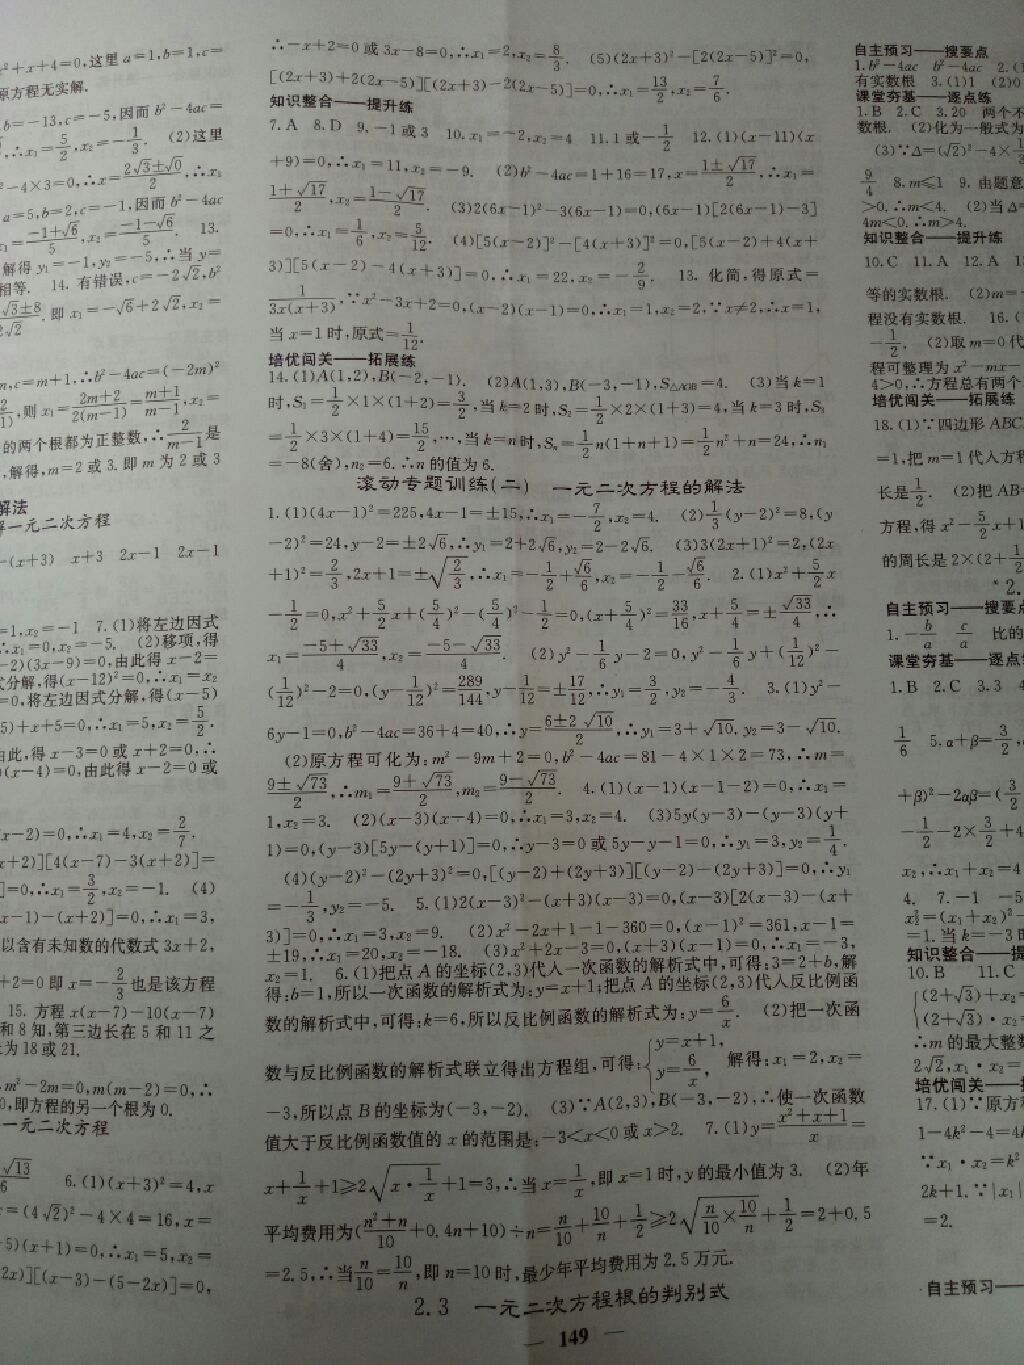 ²+x+4=0,这里a=1,b=1,c=
原方程无实解.
b=-13,c=-5,因而b²-4ac=
∴x₁=5/2,x₂=-1/3. (2)这里
²-4×3=0,∴x=(2√3±√0)/2,∴x₁
a=5,b=2,c=-1,因而b²-4ac
x₁=(-1+√6)/5,x₂=(-1-√6)/5. 13.
解得y₁=-1,y₂=-5,∴当y=
相等. 14. 有错误,c=-2√2,b²
即x₁=-√6+2√2,x₂=
m,c=m+1,∴b²-4ac=(-2m)²
则x₁=(2m+2)/(2(m-1))=(m+1)/(m-1),x₂=
的两个根都为正整数,∴2/(m-1)是
解得,m=2或3.即m为2或3
解法
解一元二次方程
-(x+3) x+3 2x-1 2x-1
=1,x₂=-1 7.(1)将左边因式
∴x₁=0,x₂=-5. (2)移项,得
-2)(3x-9)=0,由此得x-2=
式分解,得(x-12)²=0,∴x₁=x₂
=0,将左边因式分解,得(x-5)
5)+x+5=0,∴x₁=5,x₂=5/2.
由此,得x-3=0或x+2=0,∴
)(x-4)=0,由此得x-2=0或
x-2)=0,∴x₁=4,x₂=2/7.
x+2)][4(x-7)-3(x+2)]=
]=0,∴x₁=3/2,x₂=-1. (4)
x-1)-(x+2)]=0,∴x₁=3,
以含有未知数的代数式3x+2,
+2=0即x=-2/3也是该方程
15. 方程x(x-7)-10(x-7)
和8知,第三边长在5和11之
长为18或21.
m²-2m=0,m(m-2)=0,∴
0,即方程的另一个根为0.
一元二次方程
√13/6 6.(1)(x+3)²=4,x
=(4√2)²-4×4=16,x=
-5)(x+1)=0,∴x₁=5,x₂=
2x)][(x-3)-(5-2x)]=0,
∴-x+2=0或3x-8=0,∴x₁=2,x₂=8/3. (5)(2x+3)²-[2(2x-5)]²=0,
[(2x+3)+2(2x-5)][(2x+3)-2(2x-5)]=0,∴x₁=13/2,x₂=7/6.
知识整合——提升练
7.A 8.D 9.-1或3 10.x₁=-2,x₂=4 11.1或-1/2 12.(1)(x-11)(x
+9)=0,∴x₁=11,x₂=-9. (2)b²-4ac=1+16=17,x=(1±√17)/2,∴x₁=
(1+√17)/2,x₂=(1-√17)/2. (3)2(6x-1)²-3(6x-1)=0,(6x-1)[2(6x-1)-3]
=0,∴x₁=1/6,x₂=5/12. (4)[5(x-2)]²-[4(x+3)]²=0,[5(x-2)+4(x+
3)][5(x-2)-4(x+3)]=0,∴x₁=22,x₂=-2/9. 13. 化简,得原式=
1/(3x(x+3)),∵x²-3x+2=0,(x-2)(x-1)=0,∴x₁=1,x₂=2,∵x≠2,∴x=1,
当x=1时,原式=1/12.
培优闯关——拓展练
14.(1)A(1,2),B(-2,-1). (2)A(1,3),B(-3,-1),S△AOB=4. (3)当k=1
时,S₁=1/2×1×(1+2)=3/2,当k=2时,S₂=1/2×2×(1+3)=4,当k=3时,S₃
=1/2×3×(1+4)=15/2,…,当k=n时,Sₙ=1/2n(1+n+1)=1/2n²+n=24,∴n₁
=-8(舍),n₂=6.∴n的值为6.
滚动专题训练(二) 一元二次方程的解法
1.(1)(4x-1)²=225,4x-1=±15,∴x₁=-7/2,x₂=4. (2)1/3(y-2)²=8,(y
-2)²=24,y-2=±2√6,∴y₁=2+2√6,y₂=2-2√6. (3)3(2x+1)²=2,(2x
+1)²=2/3,2x+1=±√(2/3),∴x₁=-1/2+√6/6,x₂=-1/2-√6/6. 2.(1)x²+5/2x
-1/2=0,x²+5/2x+(5/4)²-(5/4)²-1/2=0,(x+5/4)²=33/16,x+5/4=±√33/4,∴
x₁=(-5+√33)/4,x₂=(-5-√33)/4. (2)y²-1/6y-2=0,y²-1/6y+(1/12)²-
(1/12)²-2=0,(y-1/12)²=289/144,y-1/12=±17/12,∴y₁=3/2,y₂=-4/3. 3.(1)y²-
6y-1=0,b²-4ac=36+4=40,∴y=(6±2√10)/2,∴y₁=3+√10,y₂=3-√10.
(2)原方程可化为:m²-9m+2=0,b²-4ac=81-4×1×2=73,∴m=
(9±√73)/2,∴m₁=(9+√73)/2,m₂=(9-√73)/2. 4.(1)(x-1)(x-1-2)=0,∴x₁=
1,x₂=3. (2)(x-3)(x-4)=0,∴x₁=3,x₂=4. (3)5y(y-3)-(y-3)(y+
1)=0,(y-3)[5y-(y+1)]=0,∴y-3=0或5y-y-1=0,∴y₁=3,y₂=1/4.
(4)(y-2)²-(2y+3)²=0,[(y-2)+(2y+3)][(y-2)-(2y+3)]=0,∴y₁
=-1/3,y₂=-5. 5.(1)2(x-3)²-(x+3)(x-3)=0,(x-3)[2(x-3)-(x+
3)]=0,∴x₁=3,x₂=9. (2)x²-2x+1-1-360=0,(x-1)²=361,x-1=
±19,∴x₁=20,x₂=-18. (3)x²+2x-3=0,(x+3)(x-1)=0,∴x₁=-3,
x₂=1. 6.(1)把点A的坐标(2,3)代入一次函数的解析式中,可得:3=2+b,解
得:b=1,所以一次函数的解析式为:y=x+1;把点A的坐标(2,3)代入反比例函
数的解析式中,可得:k=6,所以反比例函数的解析式为:y=6/x. (2)把一次函
数与反比例函数的解析式联立得出方程组,可得:{y=x+1, y=6/x, 解得:x₁=2,x₂=
-3,所以点B的坐标为(-3,-2). (3)∵A(2,3),B(-3,-2),∴使一次函数
值大于反比例函数值的x的范围是:-3<x<0或x>2. 7.(1)y=(x²+x+1)/x=
x+1/x+1≥2√(x·1/x)+1=3,∴当x=1/x,即x=1时,y的最小值为3. (2)年
平均费用为((n²+n)/10+0.4n+10)÷n=n/10+10/n+1/2≥2√(n/10×10/n)+1/2=2+0.5
=2.5,∴当n/10=10/n,即n=10时,最少年平均费用为2.5万元.
2.3 一元二次方程根的判别式
149
自主预习——搜要点
1.b²-4ac b²-4ac 2.(1
有实数根 3.(1)1 (2)0
课堂夯基——逐点练
1.B 2.C 3.20 两个不
数根. (2)化为一般式为
(3)∵Δ=(√2)²-4×
9/4 8.m≤1 9. 由题意
>0,∴m<4. (2)当Δ=
4m<0,∴m>4.
知识整合——提升练
10.C 11.A 12.A
等的实数根. (2)m=-
程没有实数根. 16.(
-1/2. (2)取m=0代
程可整理为x²-mx-
4>0,∴方程总有两个
培优闯关——拓展练
18.(1)∵四边形ABC
=1,把m=1代入方程
长是1/2. (2)把AB=
方程,得x²-5/2x+1
的周长是2×(2+1/2
*2.
自主预习——搜要点
1.-b/a c/a 比的
课堂夯基——逐点练
1.B 2.C 3.3 4
1/6 5.α+β=3/2,
+β)²-2αβ=(3/2
-1/2-2×3/2+4
x₂,∴x₁+x₂=4
4. 7.-1 -5
x₂²=(x₁+x₂)²-
=1.当k=-3时
知识整合——提
10.B 11.C
{(2+√3)+x₂=
(2+√3)·x₂=
∴m的最大整数
2√2,x₁·x₂=
培优闯关——拓
17.(1)∵原方程
1-4k²-4=4k
∵x₁·x₂=k²
2k+1.∵|x₁|
=2.
自主预习——